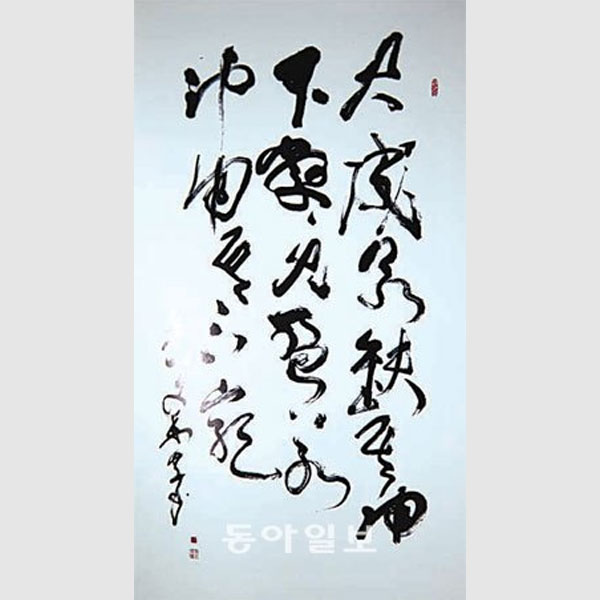 大成若缺其用
不弊大盈若
沖用其不窮
동아일보